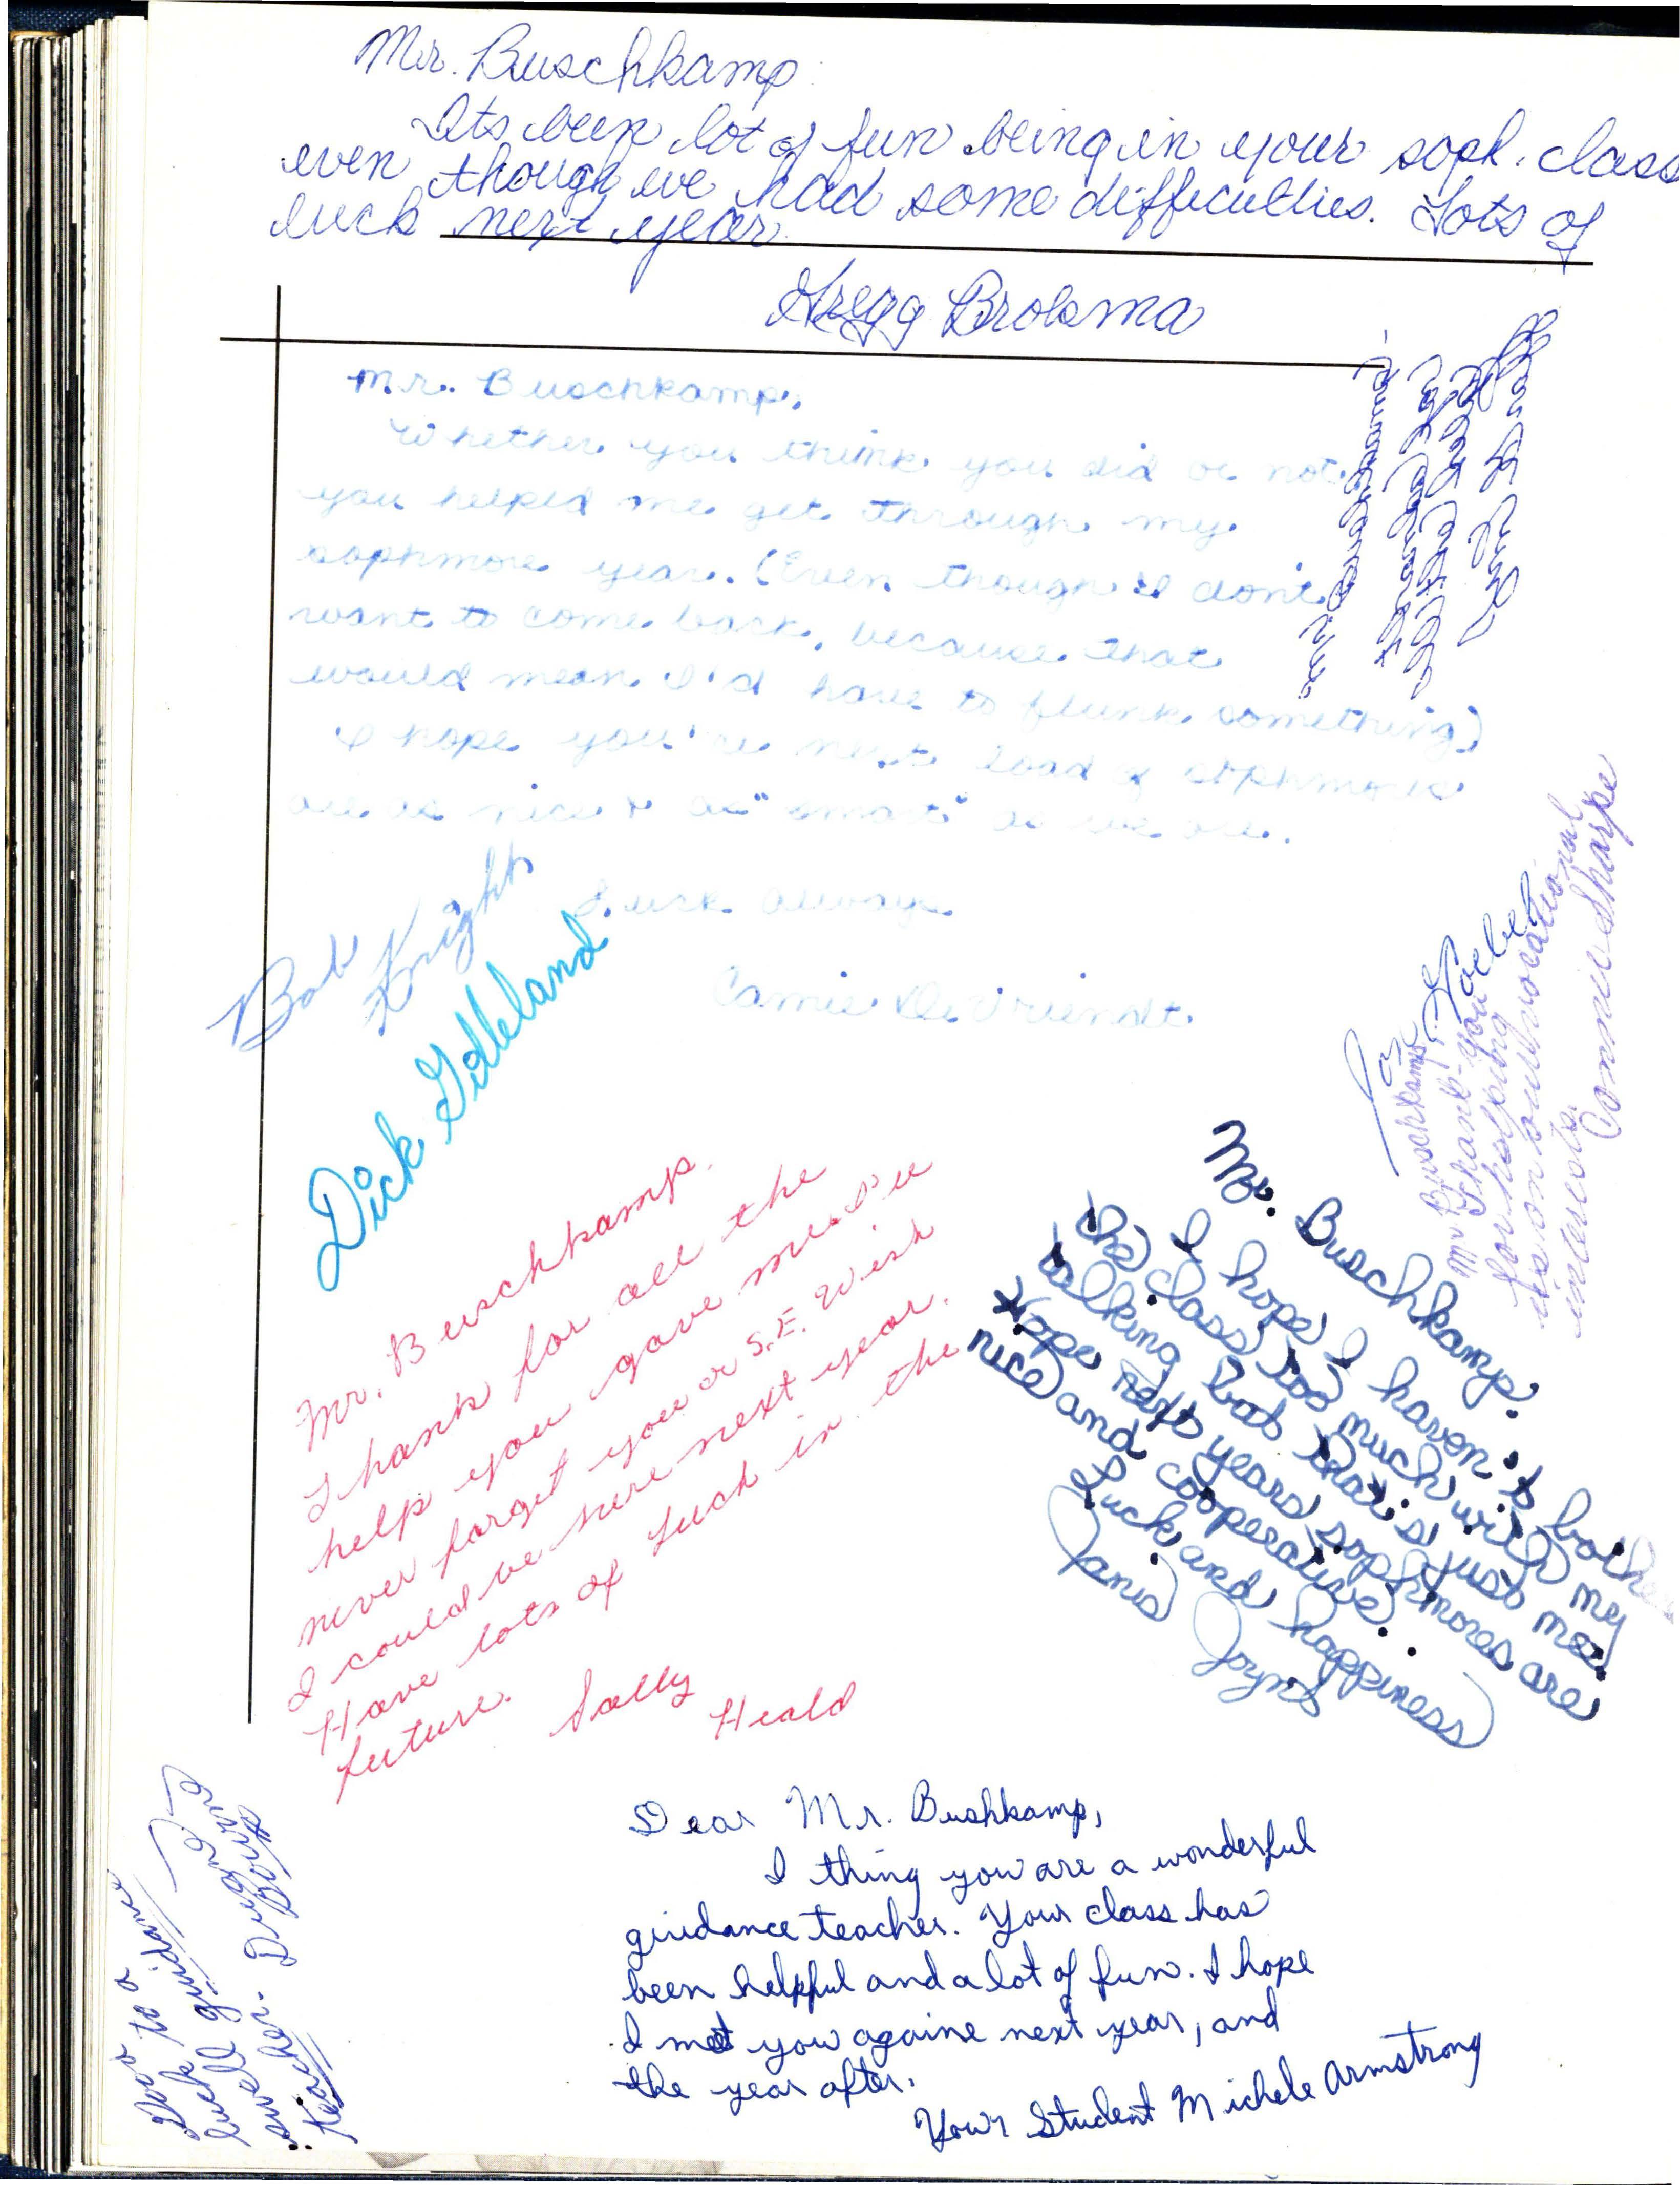 Mr. Buschkamp
Its been lot of fun being in your soph. class
even though we had some difficulties. Lots of
luck next year
Gregg Broksma
Mr. Buschkamp,
Whether you think you did or not,
you helped me get through my
sophmore year. (Even though I dont
want to come back, because that
would mean I'd have to flunk something)
I hope you're next load of sophmores
are as nice & as "smart" as we are.
Luck always
Camie De Vriendt
Bob
Knight
Dick
Mr. Buschkamp
Thank-you
for helping
us on our vocational
interests.
Connie Sharpe
Mr. Buschkamp.
Thank for all the
help you gave me. I'll
never forget you or S.E. Wish
I could be here next year.
Have lots of luck in the
future.
Sally Heald
Mr. Buschkamp.
I hope I haven't bothe
the class too much with my
talking but that's just me!
Hope next years sophmores are
nice and cooperative.
Luck and happiness
Jana Joyns
Dear Mr. Bushkamp,
I thing you are a wonderful
guidance teacher. Your class has
been helpful and a lot of fun. I hope
I met you againe next year, and
the year after.
Your Student Michele Armstrong
Good luck to a
swell guidance
teacher.